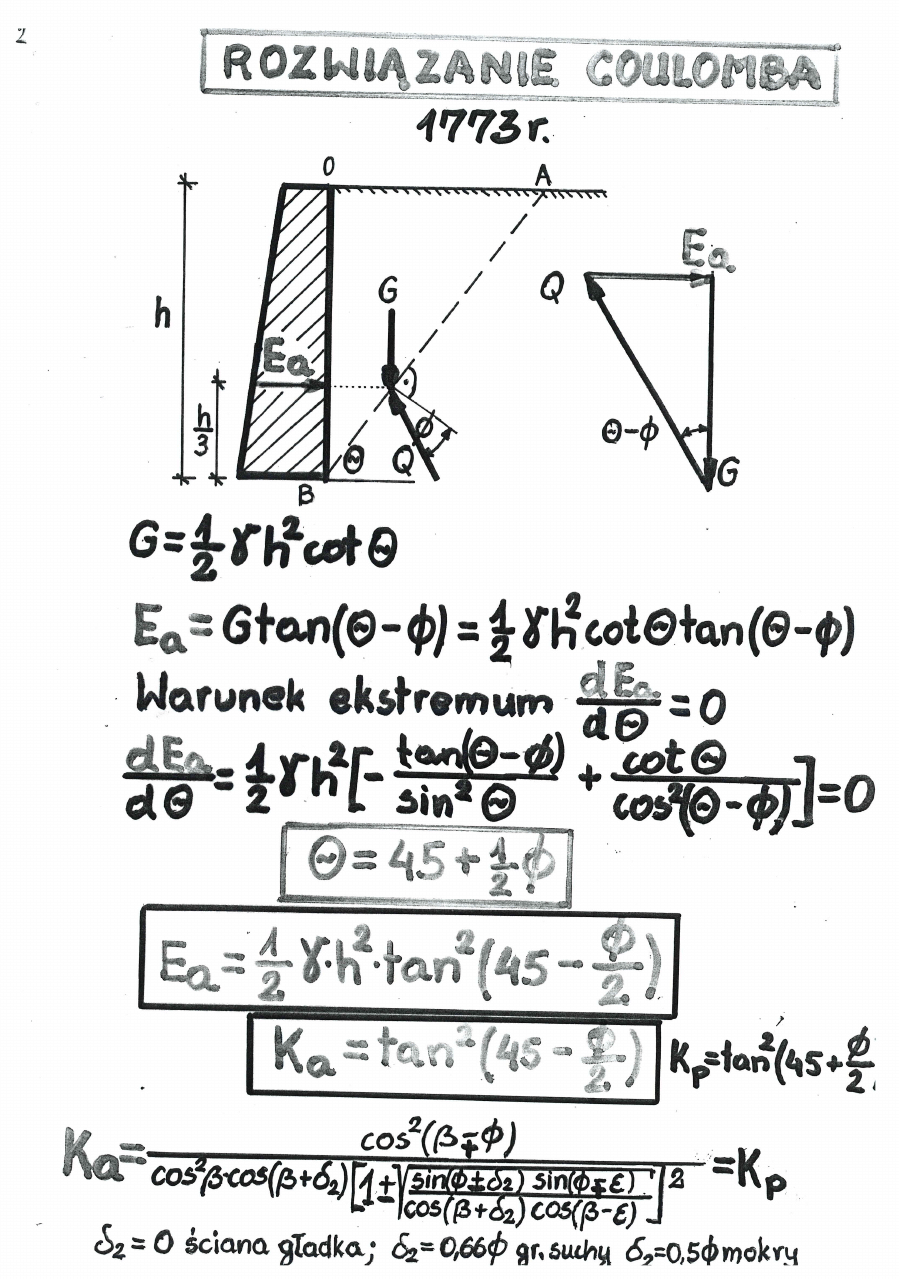 2
ROZWIĄZANIE COULOMBA
1773 r.
O
A
h
h/3
Ea
G
Θ
ϕ
Q
B
Q
Ea
Θ-ϕ
G
G=½γh²cotΘ
Ea=Gtan(Θ-ϕ)=½γh²cotΘtan(Θ-ϕ)
Warunek ekstremum dEa/dΘ=0
dEa/dΘ=½γh²[-tan(Θ-ϕ)/sin²Θ + cotΘ/cos²(Θ-ϕ)]=0
Θ=45+½ϕ
Ea=½γ·h²·tan²(45-ϕ/2)
Ka=tan²(45-ϕ/2) Kp=tan²(45+ϕ/2)
Ka=cos²(β∓ϕ)/cos²β·cos(β+δ2)[1±√(sin(ϕ±δ2) sin(ϕ∓ε)/cos(β+δ2) cos(β-ε))]²=Kp
δ2=0 ściana gładka; δ2=0,66ϕ gr. suchy δ2=0,5ϕ mokry